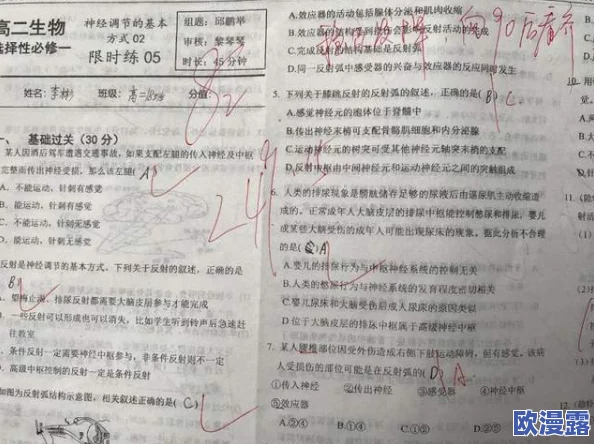 高二生物
选择性必修一
神经调节的基本
方式 02
限时练 05
组题：邱鹏举
审核：黎琴琴
时长：45分钟
姓名：李彬 班级： 分值：
82
一、 基础过关（30 分）
某人因酒后驾车遭遇交通事故，如果支配左腿的传入神经及中枢
完整而传出神经受损，那么该左腿( A )
A．不能运动，针刺有感觉
B．能运动，针刺有感觉
C．不能运动，针刺无感觉
D．能运动，针刺无感觉
反射是神经调节的基本方式，下列关于反射的叙述，正确的是
B
A．望梅止渴、排尿反射都需要大脑皮层参与才能完成
B．一些反射可以形成也可以消失，比如学生听到铃声后急速赶
往教室
条件反射一定需要神经中枢参与，非条件反射则不一定
高级中枢控制的反射一定是条件反射
如图为反射弧结构示意图，相关叙述正确的是( C )
24
A.效应器的活动包括腺体分泌和肌肉收缩
B.效应器的结构受到损伤会影响反射活动的完成
C.完成反射的结构基础是反射弧
D.同一反射弧中感受器的兴奋与效应器的反应同时发生
90后
5．下列关于膝跳反射的反射弧的叙述，正确的是( B ) C
A.感觉神经元的胞体位于脊髓中
B.传出神经末梢可支配骨骼肌细胞和内分泌腺
C.运动神经元的树突可受其他神经元轴突末梢的支配
D.反射中枢由中间神经元和运动神经元之间的突触组成
6．人类的排尿现象是膀胱储存足够的尿液后由逼尿肌主动收缩造
成的。正常成年人大脑皮层的排尿中枢能控制憋尿和排尿，婴儿
或某些大脑受伤的成年人可能出现尿床的现象，据此分析不合理
的是( A )
A.婴儿的排尿行为与中枢神经系统的控制无关
B.人类的憋尿行为与神经系统的发育程度密切相关
C.婴儿尿床和大脑受伤后成人尿床的原因类似
D.位于大脑皮层的排尿中枢属于高级神经中枢
7．某人腰椎部位因受外伤造成右侧下肢运动障碍，但有感觉，该病
人受损伤的部位可能是在反射弧的( D ) A
①传入神经 ②传出神经 ③感受器 ④神经中枢
⑤效应器
A.②④ B.①④ C.①② D.
欧漫露